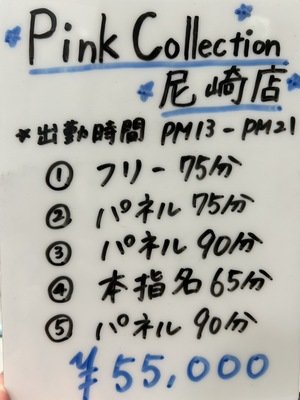 Pink Collection
尼崎店
*出勤時間 PM13-PM21
① フリー 75分
② パネル 75分
③ パネル 90分
④ 本指名 65分
⑤ パネル 90分
¥55,000